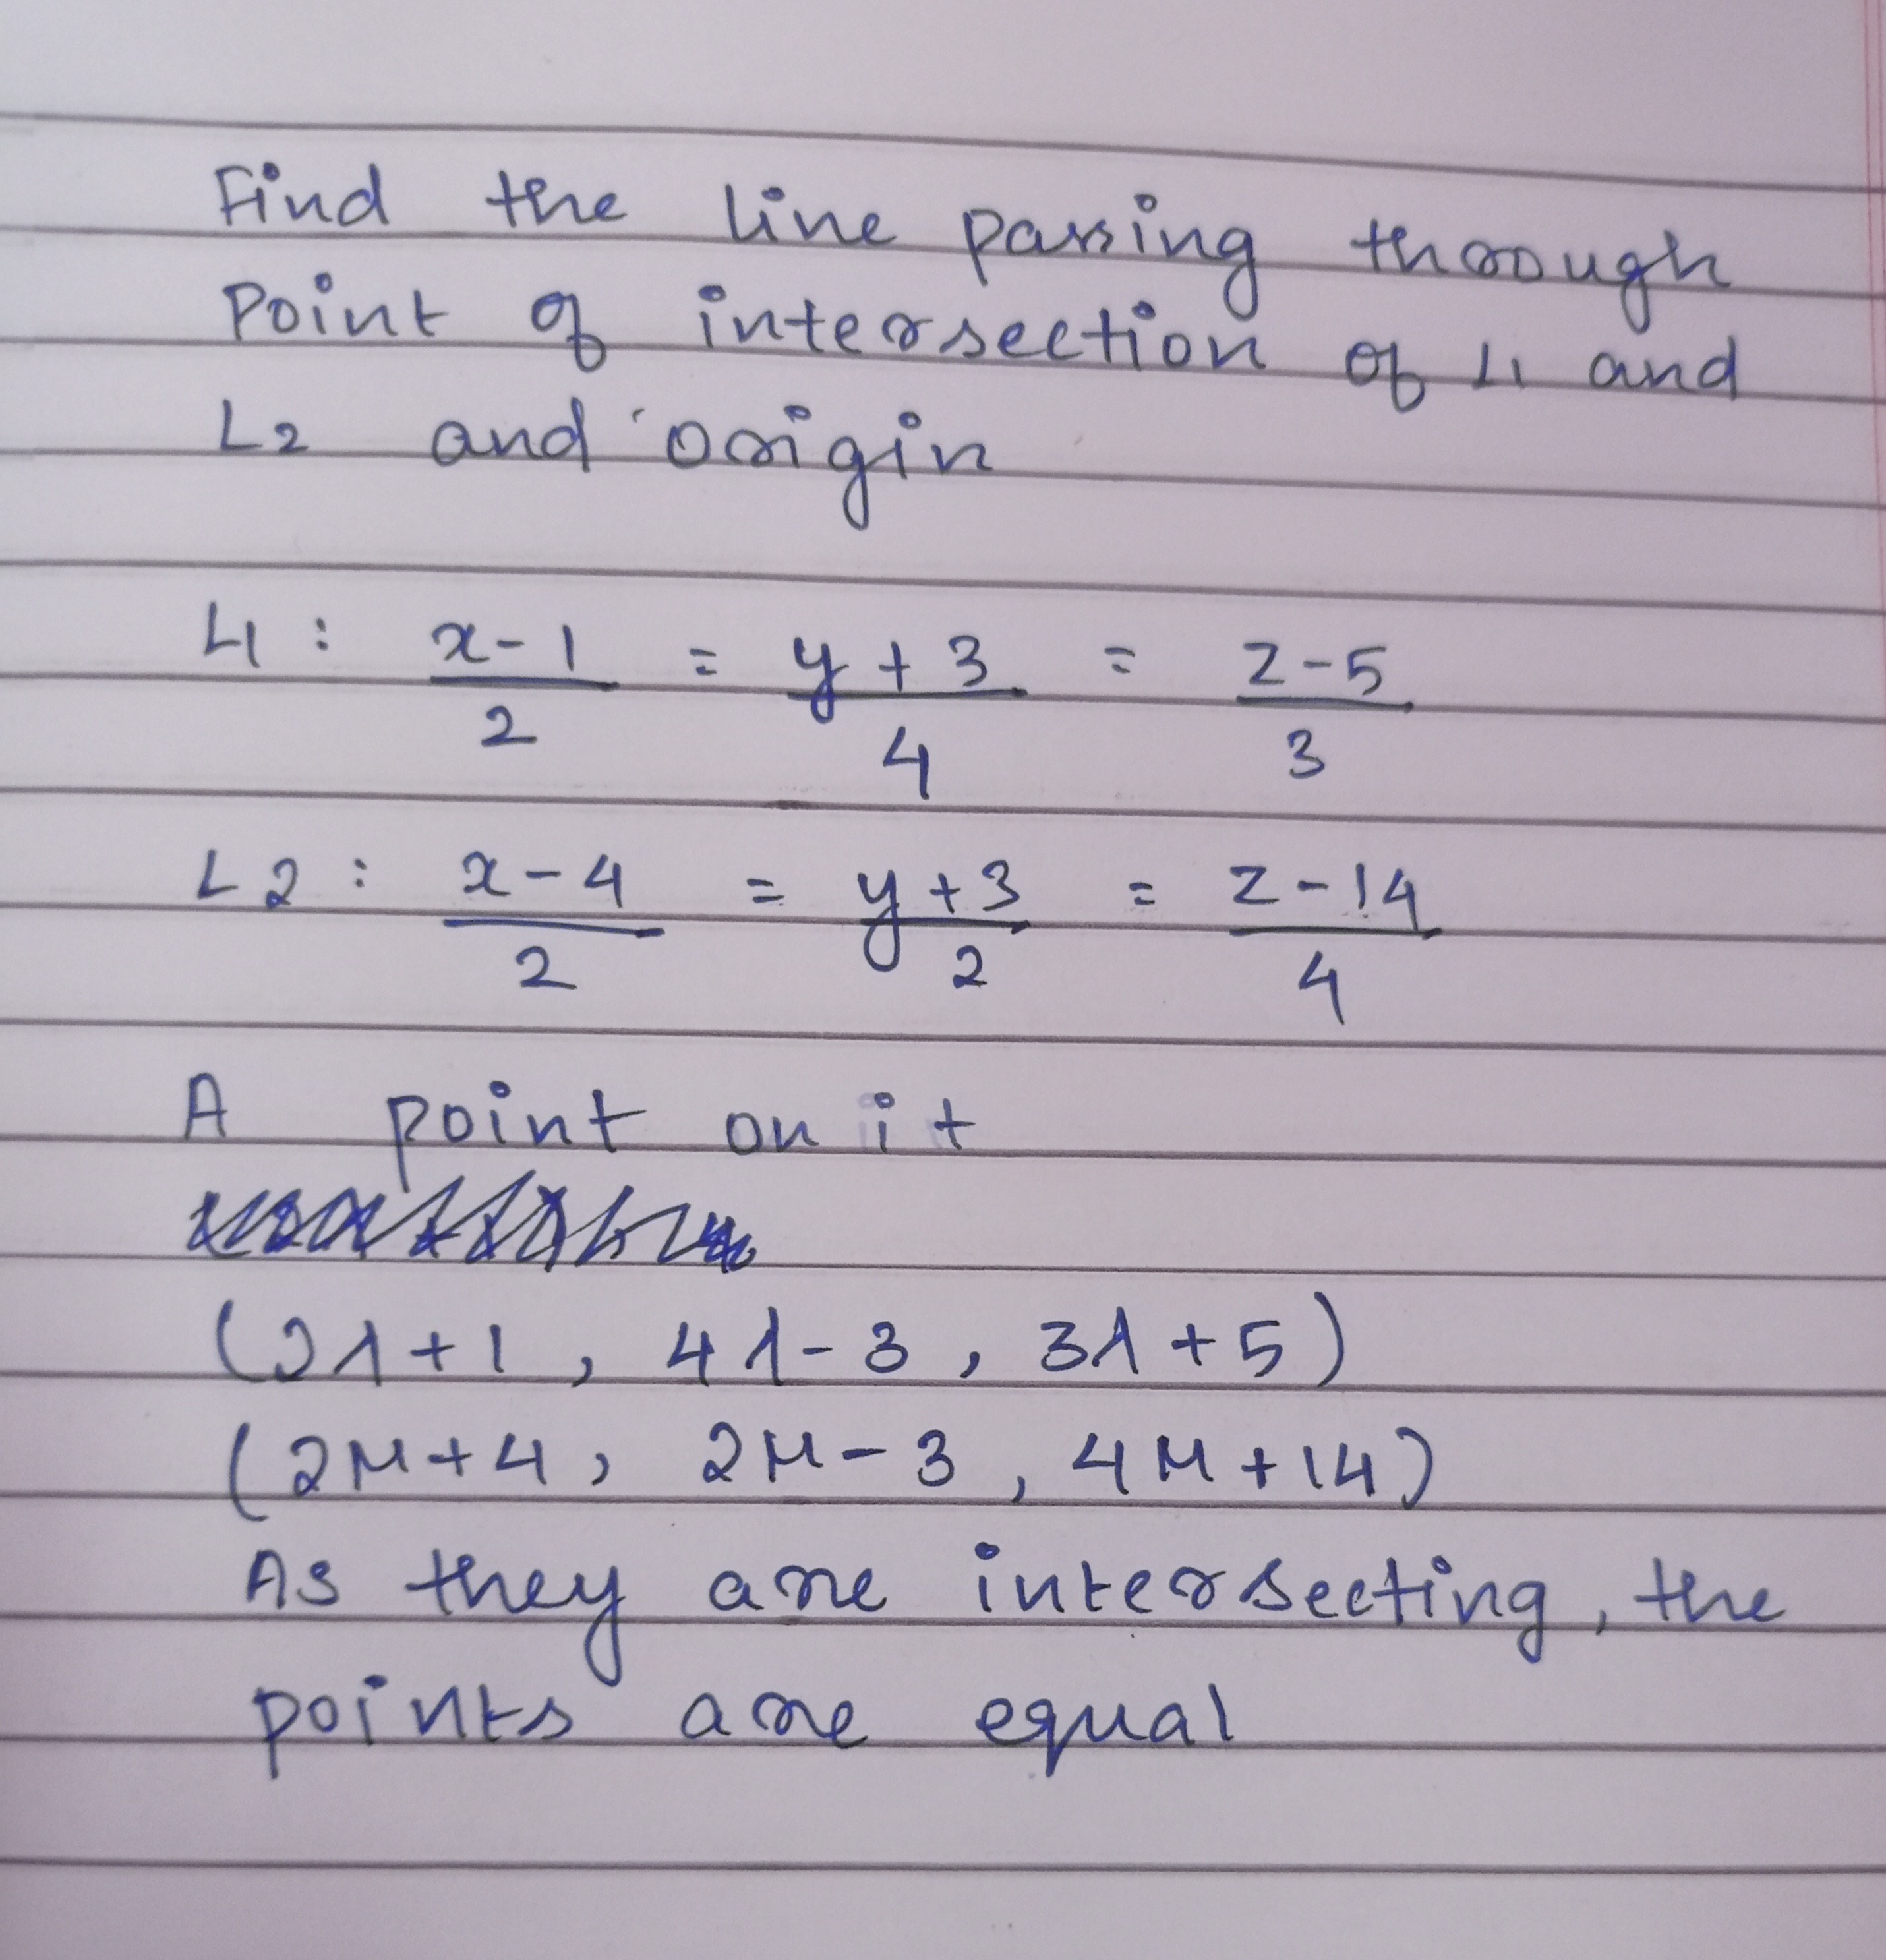 Find the line passing through
Point of intersection of L1 and
L2 and origin
L1 : x-1/2 = y+3/4 = z-5/3
L2 : x-4/2 = y+3/2 = z-14/4
A point on it
(2λ+1, 4λ-3, 3λ+5)
(2μ+4, 2μ-3, 4μ+14)
As they are intersecting, the
points are equal